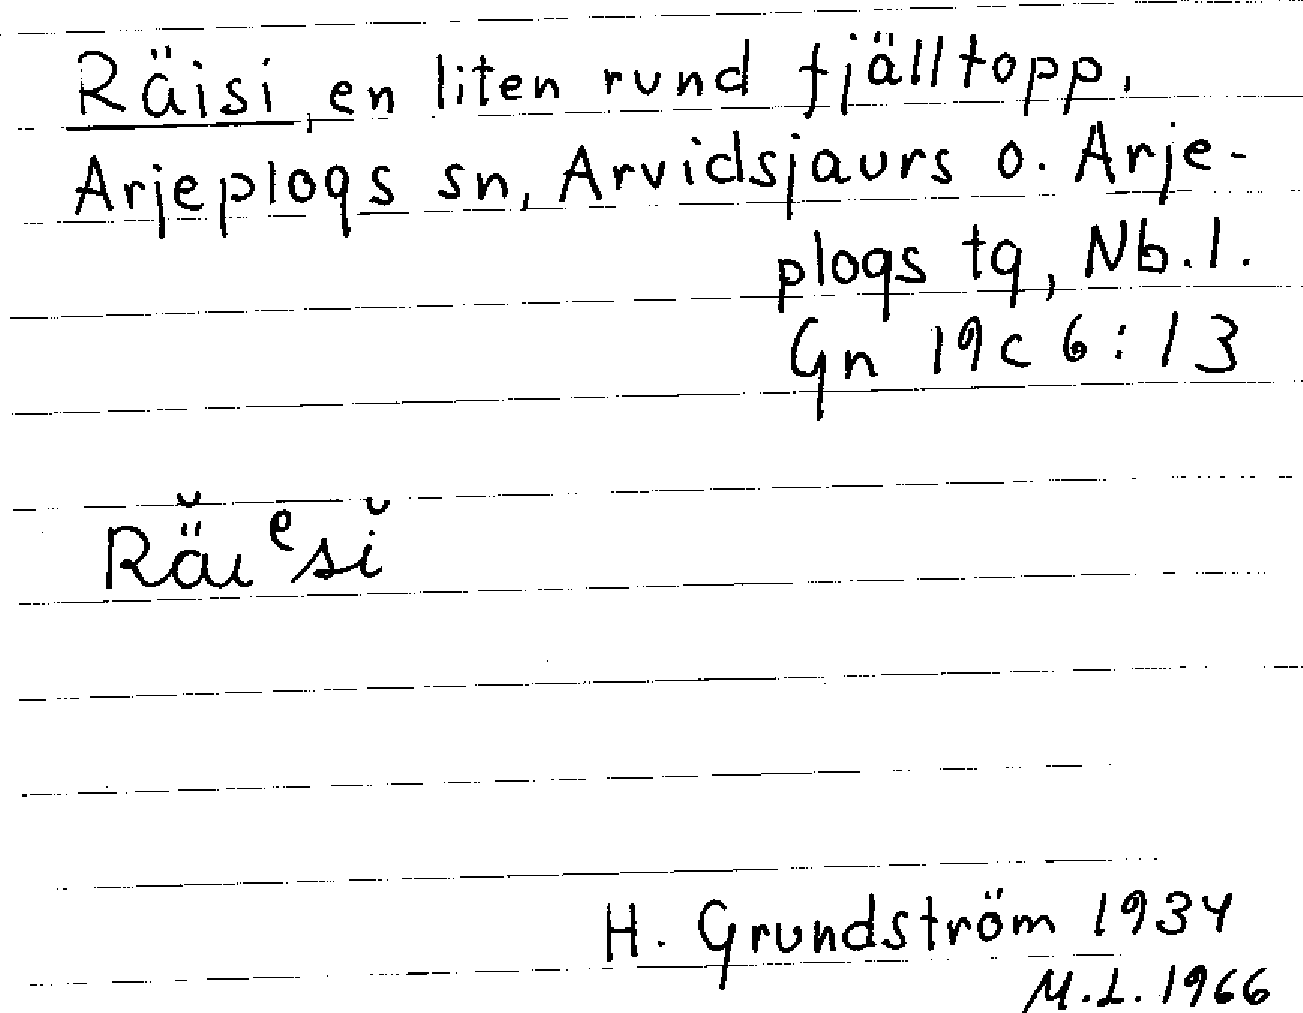 Räisi, en liten rund fjälltopp,
Arjeplogs sn, Arvidsjaurs o. Arje-
plogs tg, Nb.l.
Gn 19c 6:13
Rä̆ıᵉsĭ
H. Grundström 1934
M.L. 1966